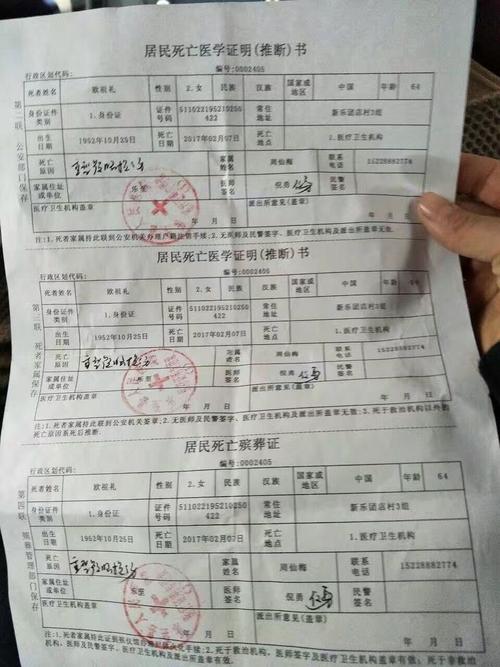 居民死亡医学证明(推断)书
行政区划代码: 编号:0002405
第二联 公安部门保存
死者姓名 欧祖礼 性别 2.女 民族 汉族 国家或地区 中国 年龄 64
身份证件类别 1.身份证 证件号码 511022195210250422 常住地址 新乐团店村3组
出生日期 1952年10月25日 死亡日期 2017年02月07日 死亡地点 1.医疗卫生机构
死亡原因 家属姓名 周仙梅 联系电话 15228882774
家属住址或单位 乐至 医师签名 倪勇 民警签名
医疗卫生机构盖章 年 月 日 派出所意见(盖章) 年 月 日
注:1.死者家属持此联到公安机关办理户籍注销手续;2.无医师及民警签字、医疗卫生机构及派出所盖章无效。
居民死亡医学证明(推断)书
行政区划代码: 编号:0002405
第三联 死者家属保存
死者姓名 欧祖礼 性别 2.女 民族 汉族 国家或地区 中国 年龄 64
身份证件类别 1.身份证 证件号码 511022195210250422 常住地址 新乐团店村3组
出生日期 1952年10月25日 死亡日期 2017年02月07日 死亡地点 1.医疗卫生机构
死亡原因 家属姓名 周仙梅 联系电话 15228882774
家属住址或单位 乐至 医师签名 倪勇 民警签名
医疗卫生机构盖章 年 月 日 派出所意见(盖章) 年 月 日
注:1.死者家属持此联到公安机关签章;2.无医师及民警签字、医疗卫生机构及派出所盖章无效;3.死于救治机构以外的死亡原因系死后推断。
居民死亡殡葬证
行政区划代码: 编号:0002405
第四联 殡葬管理部门保存
死者姓名 欧祖礼 性别 2.女 民族 汉族 国家或地区 中国 年龄 64
身份证件类别 1.身份证 证件号码 511022195210250422 常住地址 新乐团店村3组
出生日期 1952年10月25日 死亡日期 2017年02月07日 死亡地点 1.医疗卫生机构
死亡原因 家属姓名 周仙梅 联系电话 15228882774
家属住址或单位 乐至 医师签名 倪勇 民警签名
医疗卫生机构盖章 年 月 日 派出所意见(盖章) 年 月 日
注:1.死者家属持此证到殡仪馆办理尸体火化手续;2.死于救治机构,医师签字及医疗卫生机构盖章有效;死于非救治机构,医师、民警签字及医疗卫生机构及派出所盖章有效。